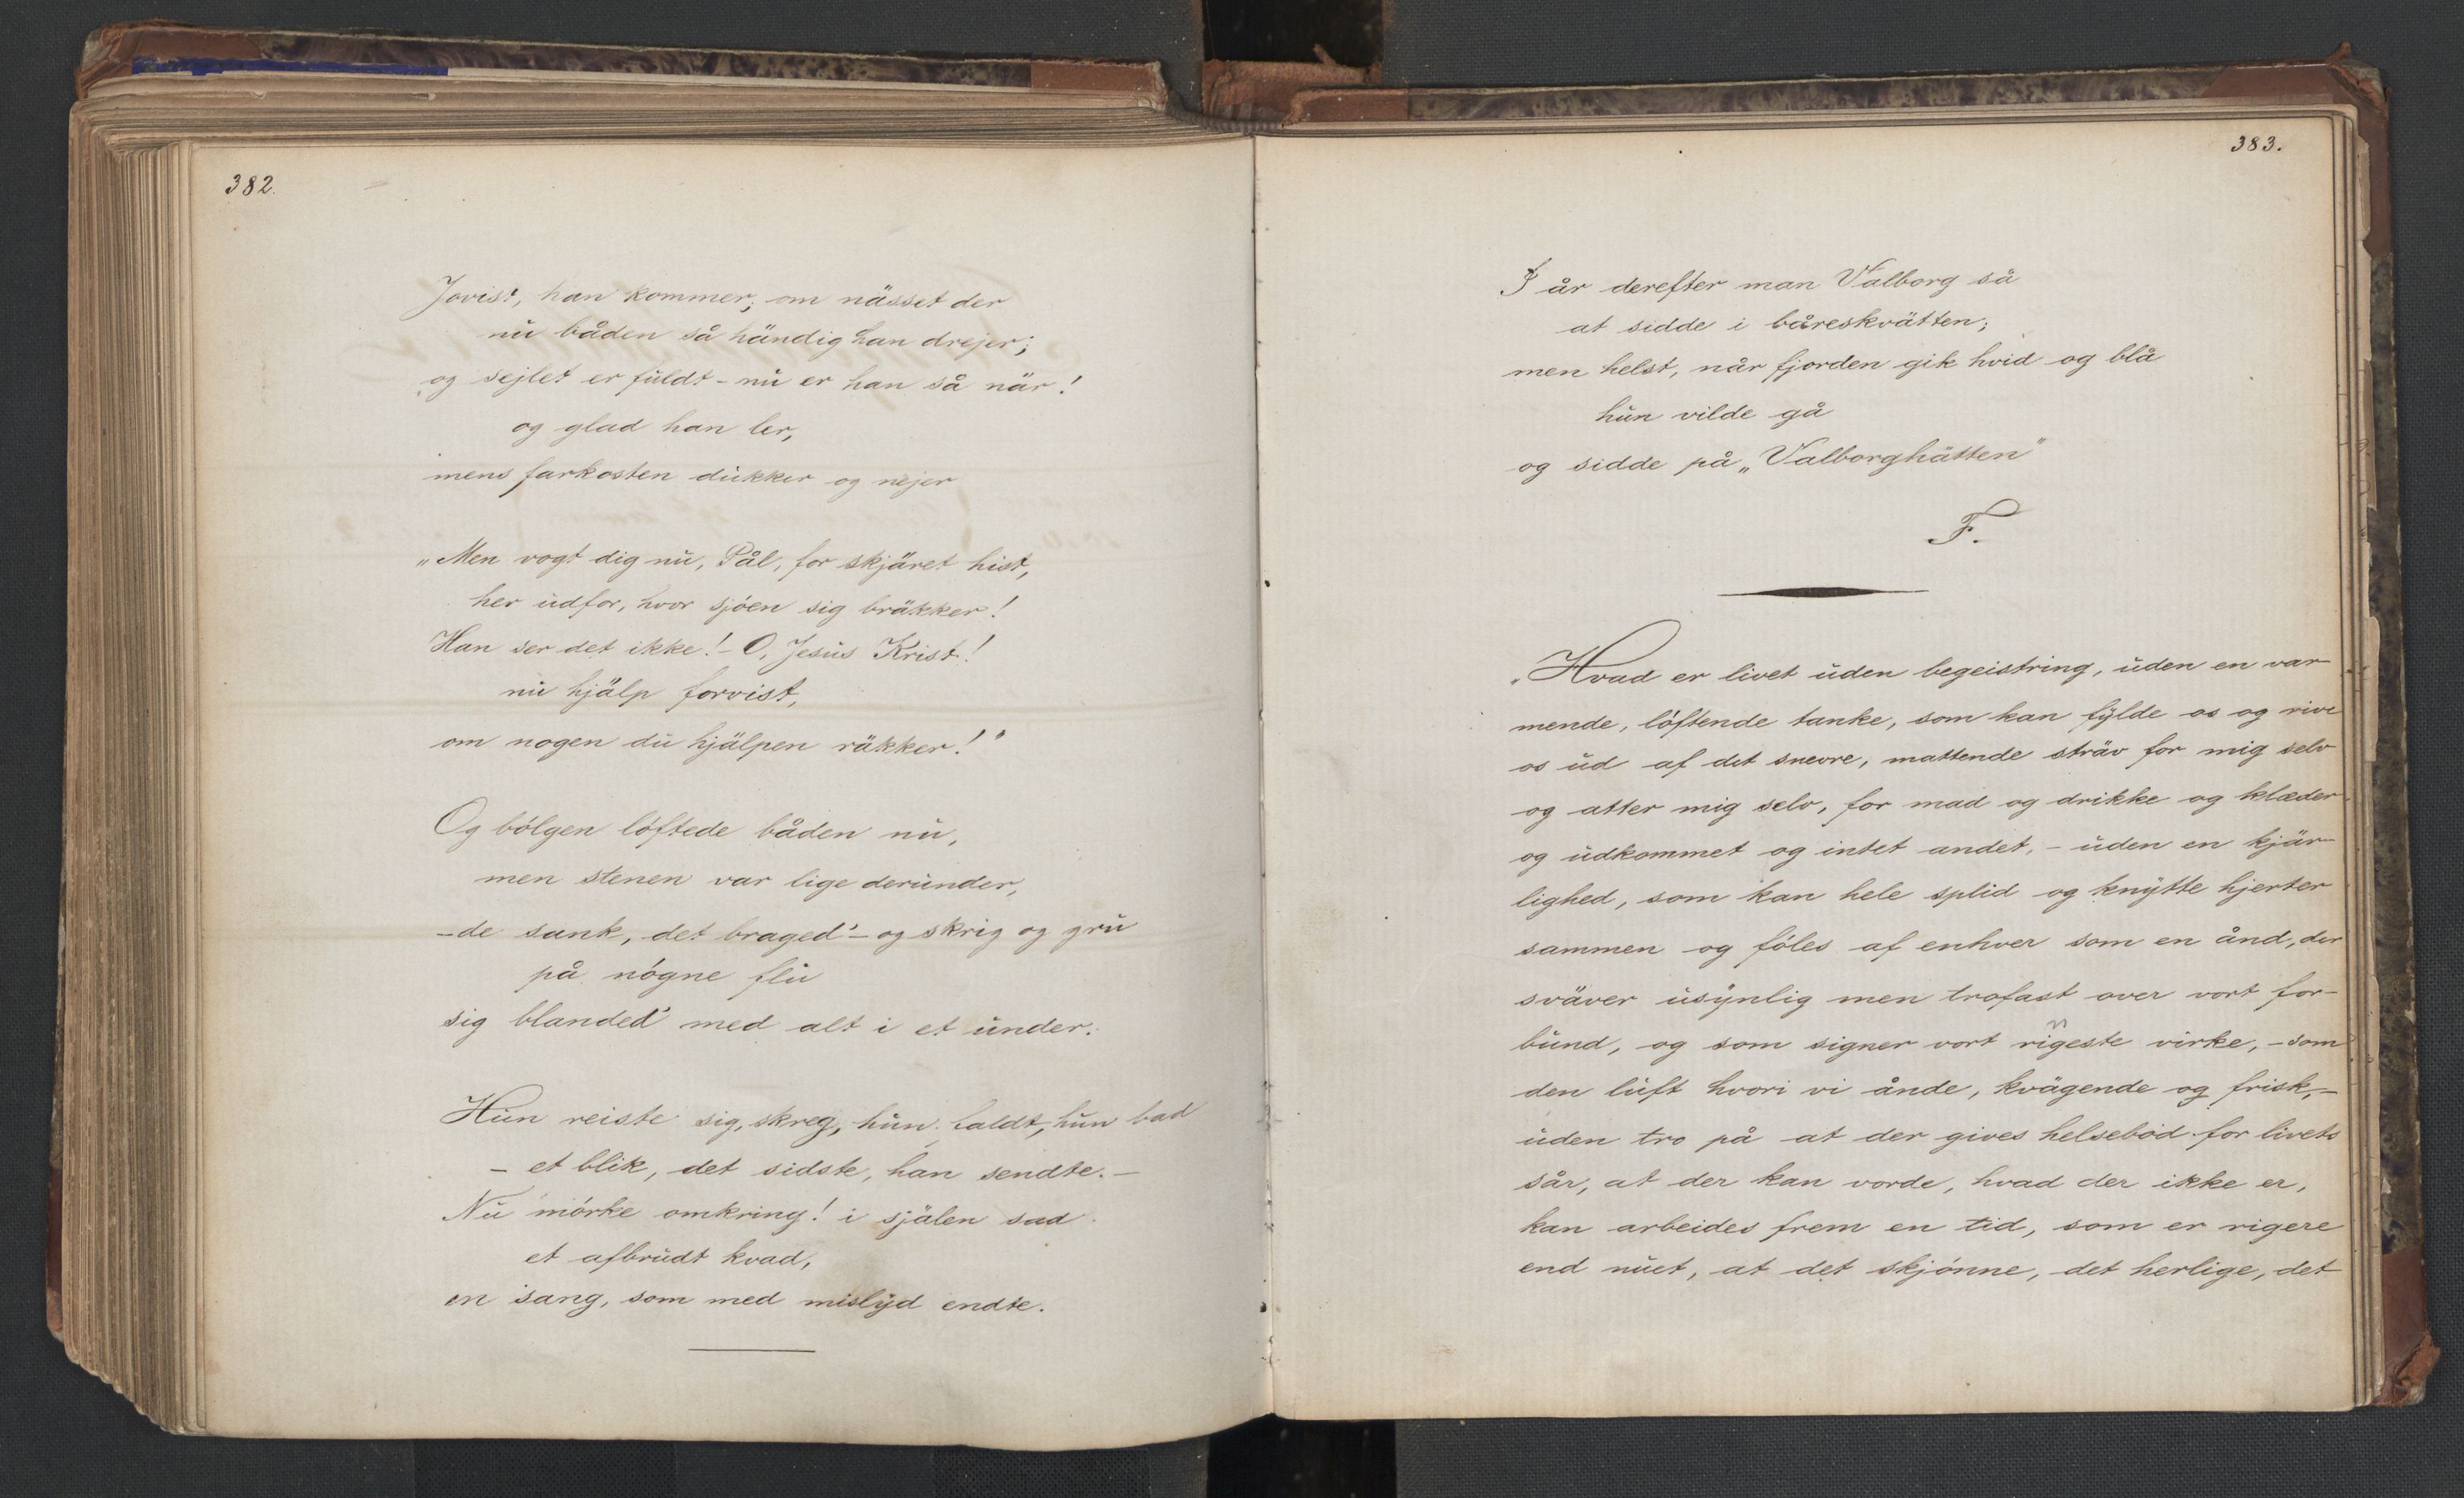 382.
Jovist, han kommer; om nässet der
nu båden så händig han drejer;
og sejlet er fuldt - nu er han så när!
og glad han ler,
imens farkosten dukker og nejer
„Men vogt dig nu, Pål, for skjäret hist,
her udfor, hvor sjöen sig bräkker!
Han ser det ikke! - O, Jesus Krist!
nu hjälp forvist,
om nogen du hjälpen räkker!"
Og bölgen löftede båden nu,
men stenen var lige derunder,
- de sank, det braged' - og skrig og gru
på nögne flu
sig blanded' med alt i et under.
Hun reiste sig, skreg, hun faldt, hun bad
- et blik, det sidste, han sendte. -
Nu mörke omkring! i själen sad
et afbrudt kvad,
en sang, som med mislyd endte.
383.
I år derefter man Valborg så
at sidde i båreskvätten;
men helst, når fjorden gik hvid og blå
hun vilde gå
og sidde på „Valborghätten"
F.
„Hvad er livet uden begeistring, uden en var-
mende, löftende tanke, som kan fylde os og rive
os ud af det snevre, mattende sträv for mig selv
og atter mig selv, for mad og drikke og klæder
og udkommet og intet andet, - uden en kjär-
lighed, som kan hele splid og knytte hjerter
sammen og föles af enhver som en ånd, der
sväver usynlig men trofast over vort for-
bund, og som signer vort ringeste virke, - som
den luft hvori vi ånde, kvägende og frisk, -
uden tro på at der gives helsebod for livets
sår, at der kan vorde, hvad der ikke er,
kan arbeides frem en tid, som er rigere
end nuet, at det skjönne, det herlige, det